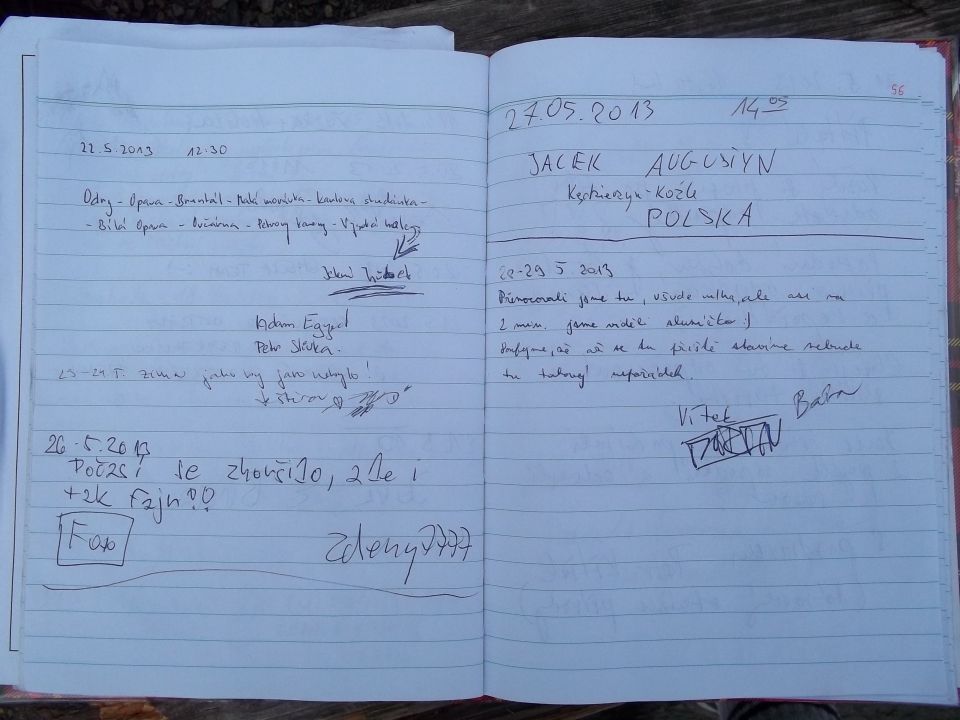 22.5.2013 12:30
Odry - Opava - Bruntál - Malá morávka - Karlova studánka -
- Bílá Opava - Ovčárna - Petrovy kameny - Vysoká hole
Adam Egyed
Petr Slívka.
23-24 5. zima jako by jaro nebylo!
26.5.2013
Počasí se zhoršilo, ale i
tak fajn!!
Foto
zdeny7777
56
27.05.2013 14 05
JACEK AUGUSTYN
Kędzierzyn-Koźle
POLSKA
28-29 5 2013
Přenocovali jsme tu, všude mlha, ale asi na
2 min. jsme viděli sluníčko :)
Doufejme, že až se tu příště stavíme nebude
tu takový nepořádek.
Vítek